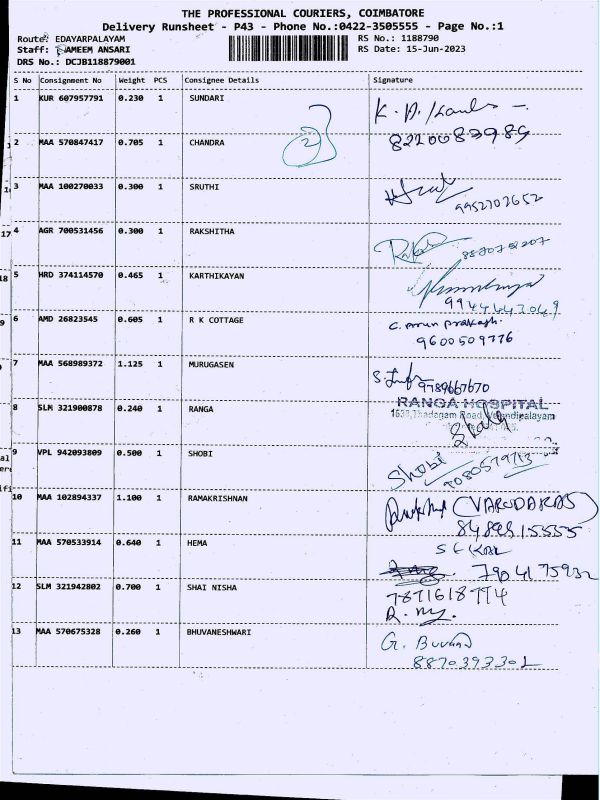 THE PROFESSIONAL COURIERS, COIMBATORE
Delivery Runsheet - P43 - Phone No.:0422-3505555 - Page No.:1
Route: EDAYARPALAYAM RS No.: 1188790
Staff: AMEEM ANSARI RS Date: 15-Jun-2023
DRS No.: DCJB118879001
S No Consignment No Weight PCS Consignee Details Signature
1 KUR 607957791 0.230 1 SUNDARI
8220083989
2
2 MAA 570847417 0.705 1 CHANDRA
3 MAA 100270033 0.300 1 SRUTHI
9952702652
17 4 AGR 700531456 0.300 1 RAKSHITHA
18 5 HRD 374114570 0.465 1 KARTHIKAYAN
9944443049
9 6 AMD 26823545 0.605 1 R K COTTAGE C. Arun prakash.
9600509776
7 MAA 568989372 1.125 1 MURUGASEN
9789667670
RANGA HOSPITAL
8 SLM 321900878 0.240 1 RANGA
9 VPL 942093809 0.500 1 SHOBI Shobi
8080579713
10 MAA 102894337 1.100 1 RAMAKRISHNAN (VARUDARAS)
8489515555
11 MAA 570533914 0.640 1 HEMA
7904175932
12 SLM 321942802 0.700 1 SHAI NISHA 7871618774
13 MAA 570675328 0.260 1 BHUVANESHWARI G. Buvana
8870393301